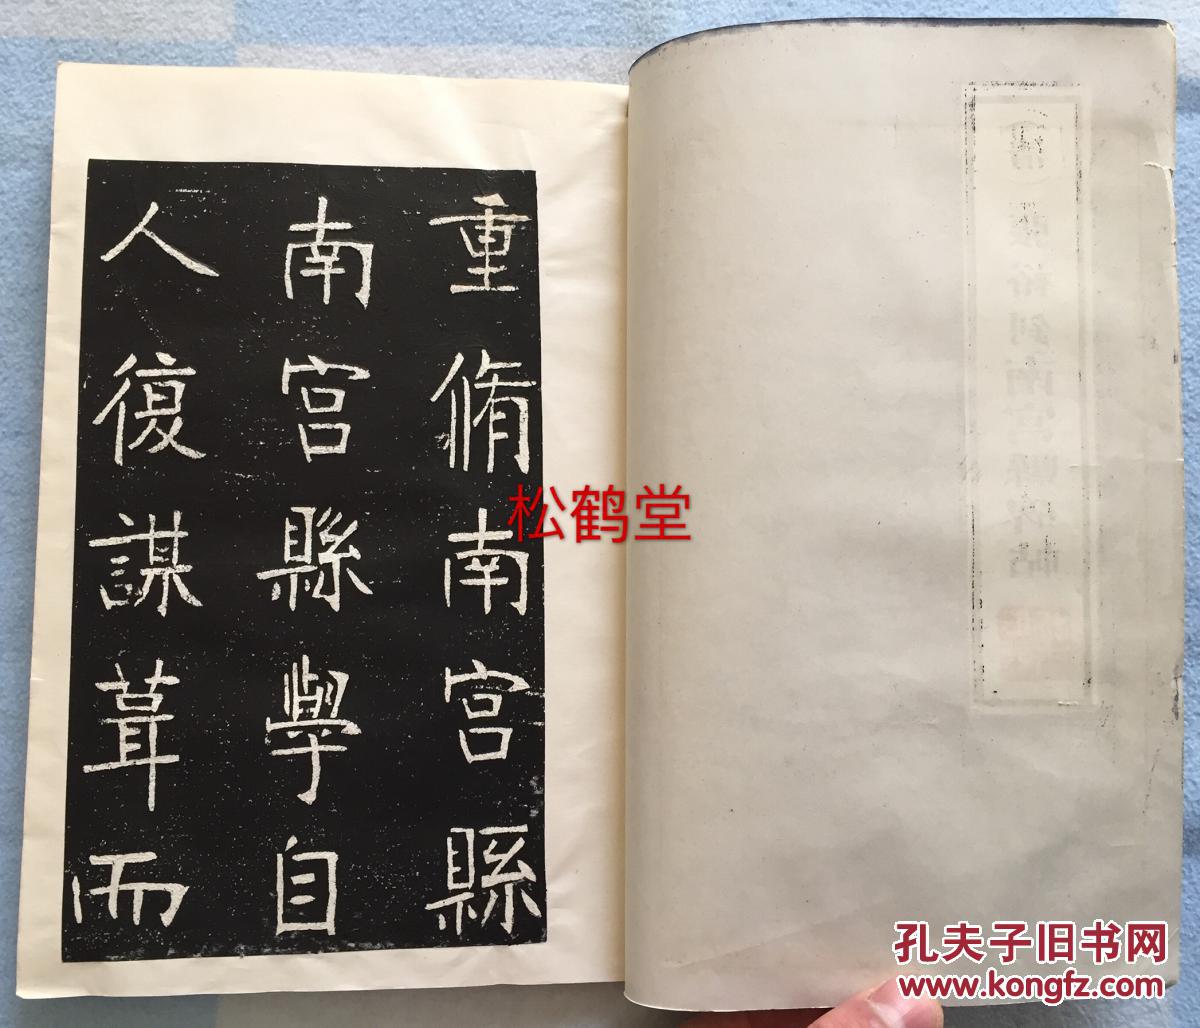 重脩南宫縣
南宫縣學自
人復謀葺而
松鹤堂
孔夫子旧书网
www.kongfz.com